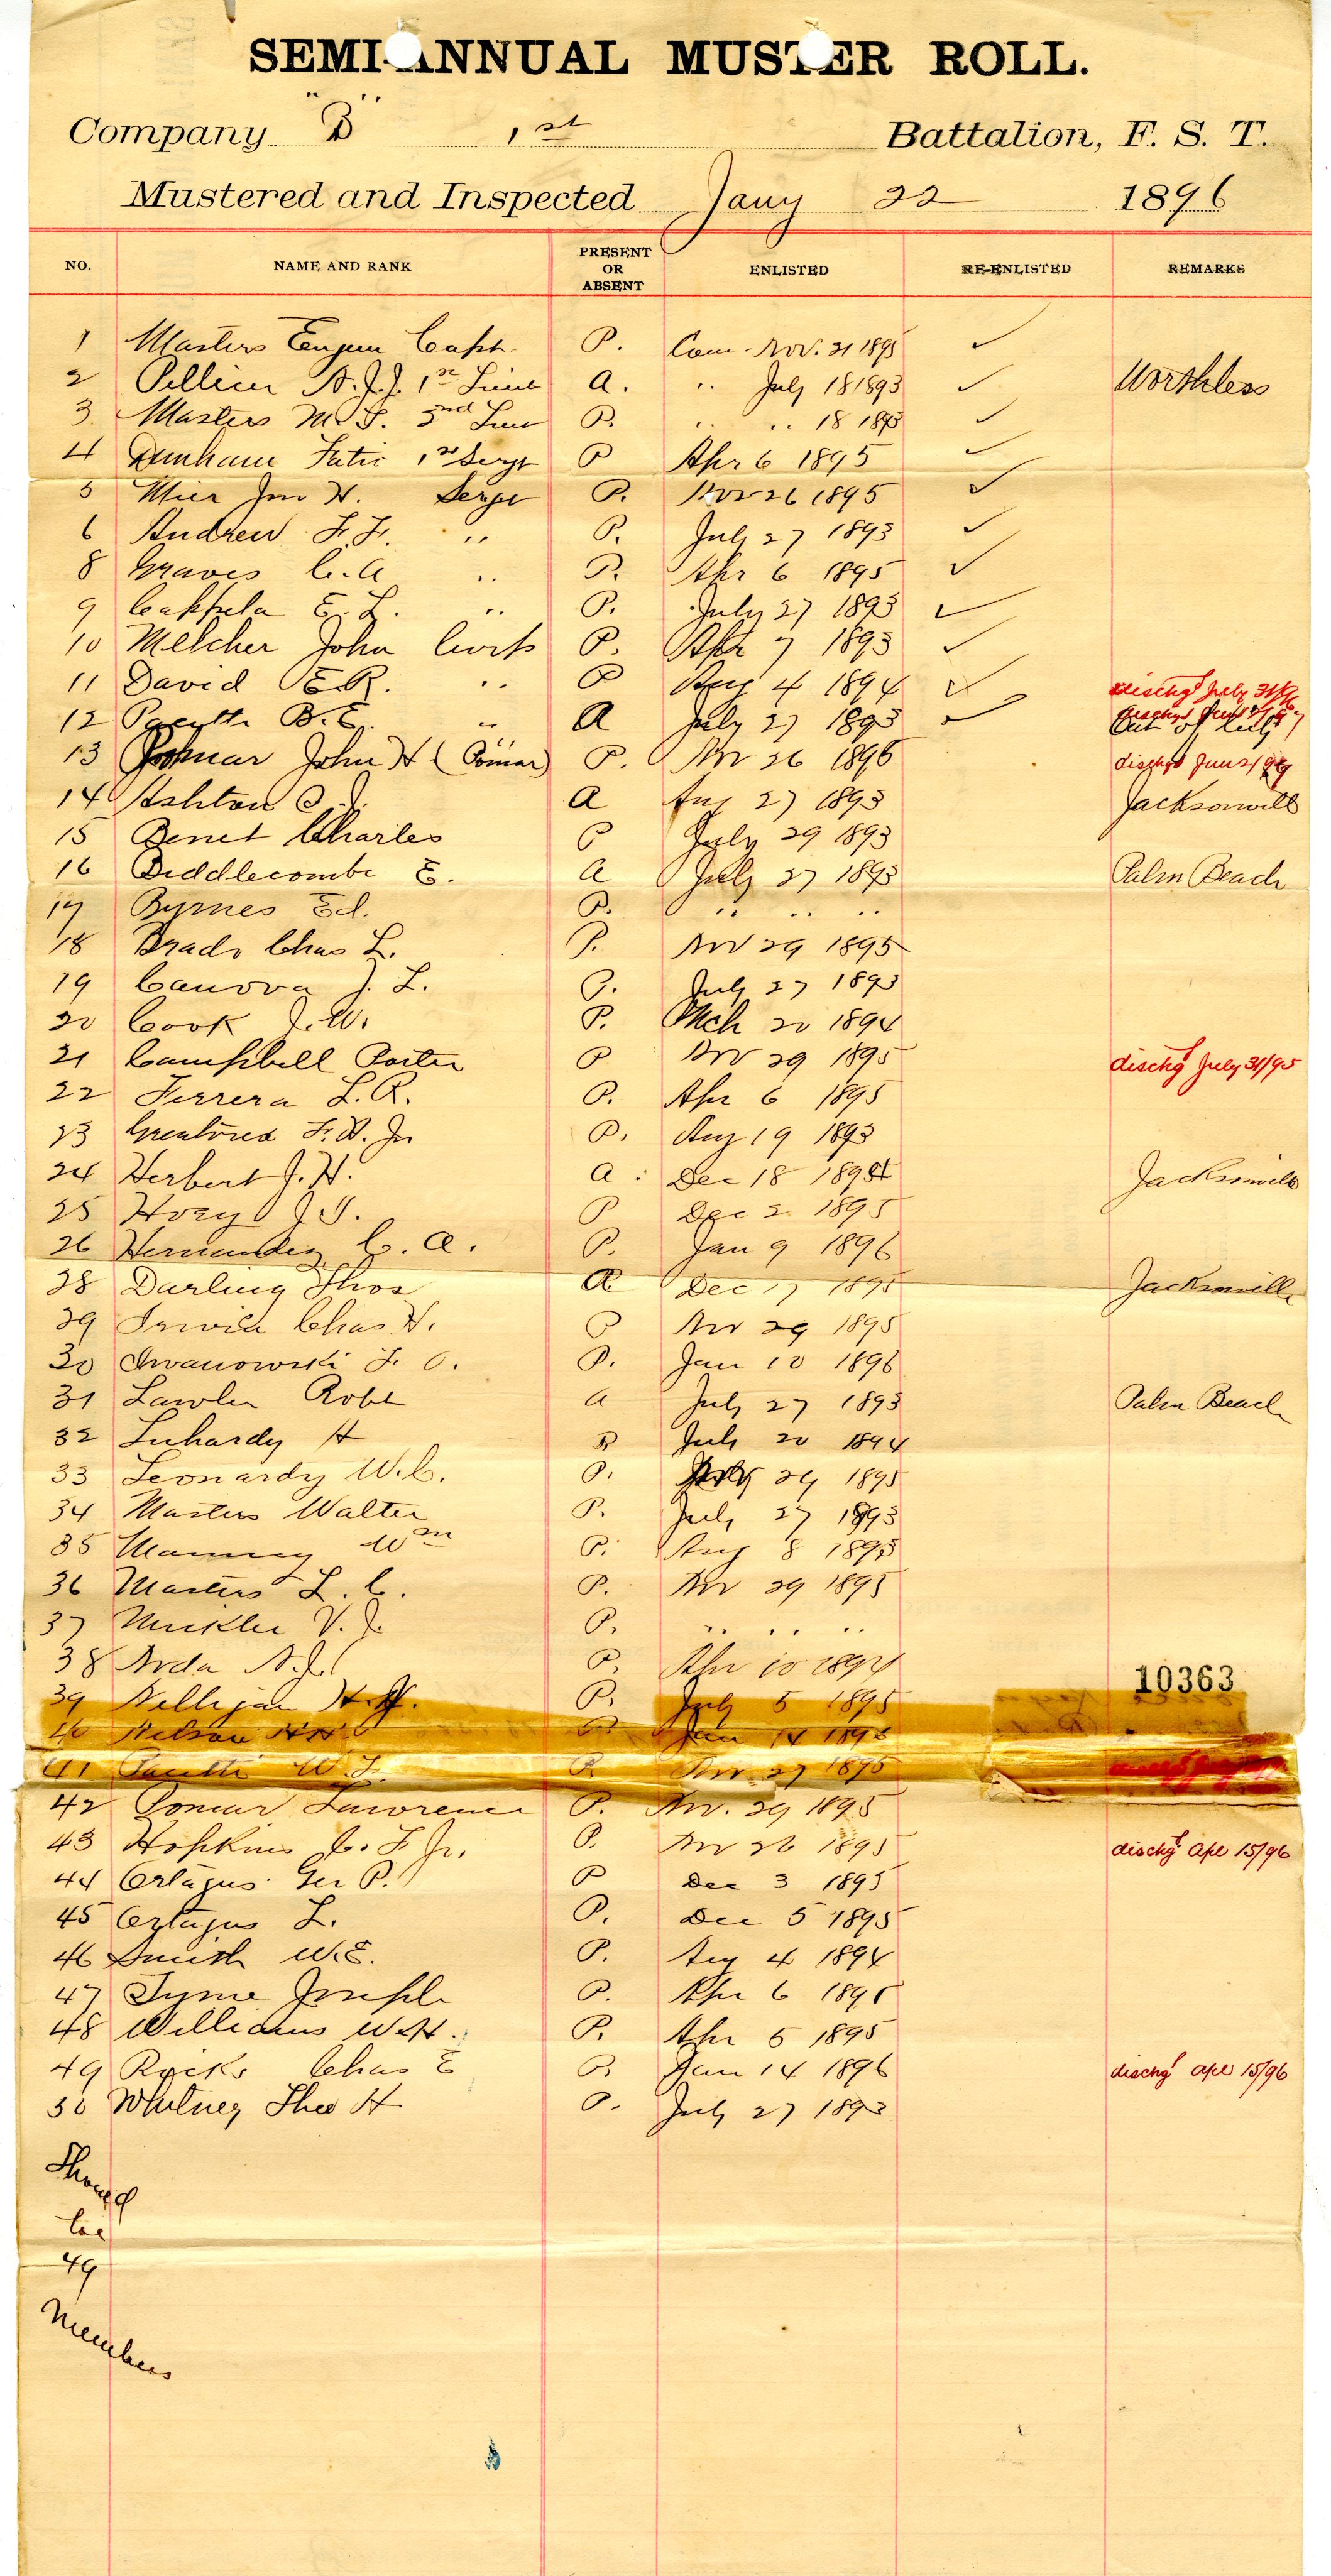 SEMI-ANNUAL MUSTER ROLL.
Company "B" 1st Battalion, F. S. T.
Mustered and Inspected Jany 22 1896
NO. NAME AND RANK PRESENT OR ABSENT ENLISTED RE-ENLISTED REMARKS
1 Masters Eugen Capt. P. Com. Nov. 21 1895 ✓
2 Pellicer A. J. J. 1st Lieut A. " July 18 1893 ✓ Worthless
3 Masters M. S. 2nd Lieu P. " " 18 1893 ✓
4 Dunham Fatio 1st Sergt P Apr 6 1895 ✓
5 Mier Jno H. Sergt P. Nov 26 1895 ✓
6 Andrew F. F. " P. July 27 1893 ✓
8 Graves C. A " P. Apr 6 1895 ✓
9 Cappela E. L. " P. July 27 1893 ✓
10 Melcher John Corp P. Apr 7 1893 ✓
11 David E R. " P Aug 4 1894 ✓ dischgd July 31/96
12 Pacetti B. E. " A July 27 1893 ✓ Out of City
13 Pomar John H (Pomar) P. Nov 26 1896 dischgd
14 Ashton C. J. A Aug 27 1893 Jacksonvill
15 Benet Charles P July 29 1893
16 Biddlecombe E. A July 27 1893 Palm Beach
17 Byrnes Ed. P. " " "
18 Brado Chas L. P. Nov 29 1895
19 Canova J. L. P. July 27 1893
20 Cook J. W. P. Mch 20 1894
21 Campbell Porter P Nov 29 1895 dischgd July 31/95
22 Ferrera L. R. P. Apr 6 1895
23 Greatorex F. A. Jr P. Aug 19 1893
24 Herbert J. H. A. Dec 18 1894 Jacksonvill
25 Hoey J S. P Dec 2 1895
26 Hernandez C. A. P. Jan 9 1896
28 Darling Thos A Dec 17 1895 Jacksonville
29 Irwin Chas H. P Nov 29 1895
30 Iwanowski F. O. P. Jan 10 1896
31 Lawler Robt A July 27 1893 Palm Beach
32 Luhardy H P July 20 1894
33 Leonardy W. C. P. 29 1895
34 Masters Walter P. July 27 1893
35 Manucy Wm P. Aug 8 1893
36 Masters L. C. P. Nov 29 1895
37 Mickler V. J. P. " " "
38 Noda A. J. P. Apr 10 1894
10363
39 Nelligan H. P. July 5 1895
40 Nelson H H. P. Jan 14 1896
41 Pacetti W. J. P. Nov 27 1895
42 Pomar Lawrence P. Nov. 29 1895
43 Hopkins C. F Jr. P. Nov 26 1895 dischgd Apl 15/96
44 Ortagus Geo P. P Dec 3 1895
45 Ortagus L. P. Dec 5 1895
46 Smith W. E. P. Aug 4 1894
47 Tyme Joseph P. Apr 6 1895
48 Williams W. H. P. Apr 6 1895
49 Ricks Chas E P. Jan 14 1896 dischgd Apl 15/96
50 Whitney Theo H P. July 27 1893
Should
be
49
Members